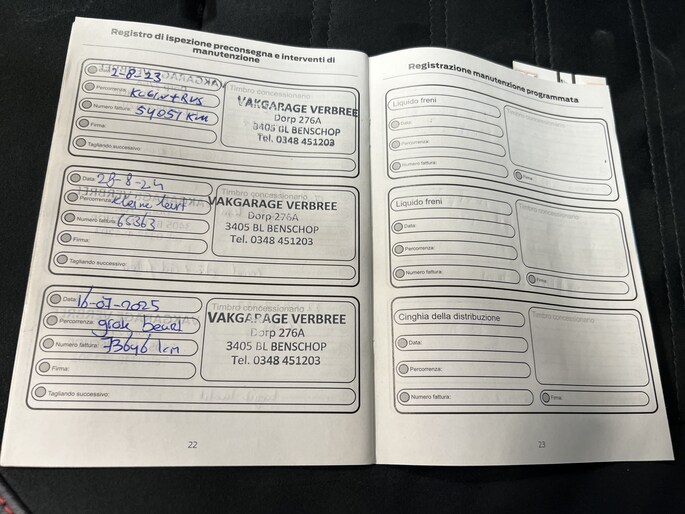 Registro di ispezione preconsegna e interventi di
manutenzione
Data: 1-8-23
Percorrenza:
Numero fattura: 54051 km
Firma:
Tagliando successivo:
Timbro concessionario
VAKGARAGE VERBREE
Dorp 276A
3405 BL BENSCHOP
Tel. 0348 451203
Data: 28-8-24
Percorrenza: kleine beurt
Numero fattura: 66363
Firma:
Tagliando successivo:
Timbro concessionario
VAKGARAGE VERBREE
Dorp 276A
3405 BL BENSCHOP
Tel. 0348 451203
Data: 16-07-2025
Percorrenza: grote beurt
Numero fattura: 73646 km
Firma:
Tagliando successivo:
Timbro concessionario
VAKGARAGE VERBREE
Dorp 276A
3405 BL BENSCHOP
Tel. 0348 451203
22
Registrazione manutenzione programmata
Liquido freni
Data:
Percorrenza:
Numero fattura:
Timbro concessionario
Firma:
Liquido freni
Data:
Percorrenza:
Numero fattura:
Timbro concessionario
Firma:
Cinghia della distribuzione
Data:
Percorrenza:
Numero fattura:
Timbro concessionario
Firma:
23